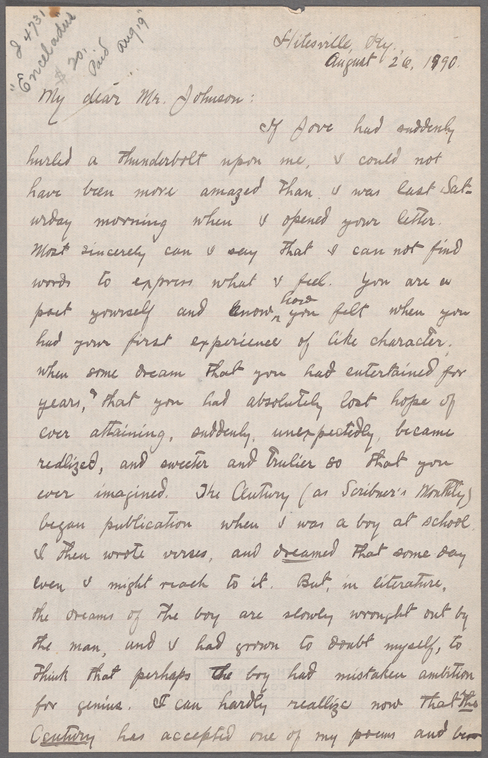 J 4731
"Enceladus"
$20.
Paid Aug 19
Hitesville, Ky.,
August 26, 1890.
My dear Mr. Johnson:
If Jove had suddenly
hurled a thunderbolt upon me, I could not
have been more amazed than I was last Sat-
urday morning when I opened your letter.
Most sincerely can I say that I can not find
words to express what I feel. You are a
poet yourself and know how you felt when you
had your first experience of like character.
When some dream that you had entertained for
years, that you had absolutely lost hope of
ever attaining, suddenly, unexpectedly, became
reallized, and sweeter and trulier so that you
ever imagined. The Century (as Scribner's Monthly)
began publication when I was a boy at school.
I then wrote verses, and dreamed that some day
even I might reach to it. But, in literature,
the dreams of the boy are slowly wrought out by
the man, and I had grown to doubt myself, to
think that perhaps the boy had mistaken ambition
for genius. I can hardly reallize now that the
Century has accepted one of my poems and